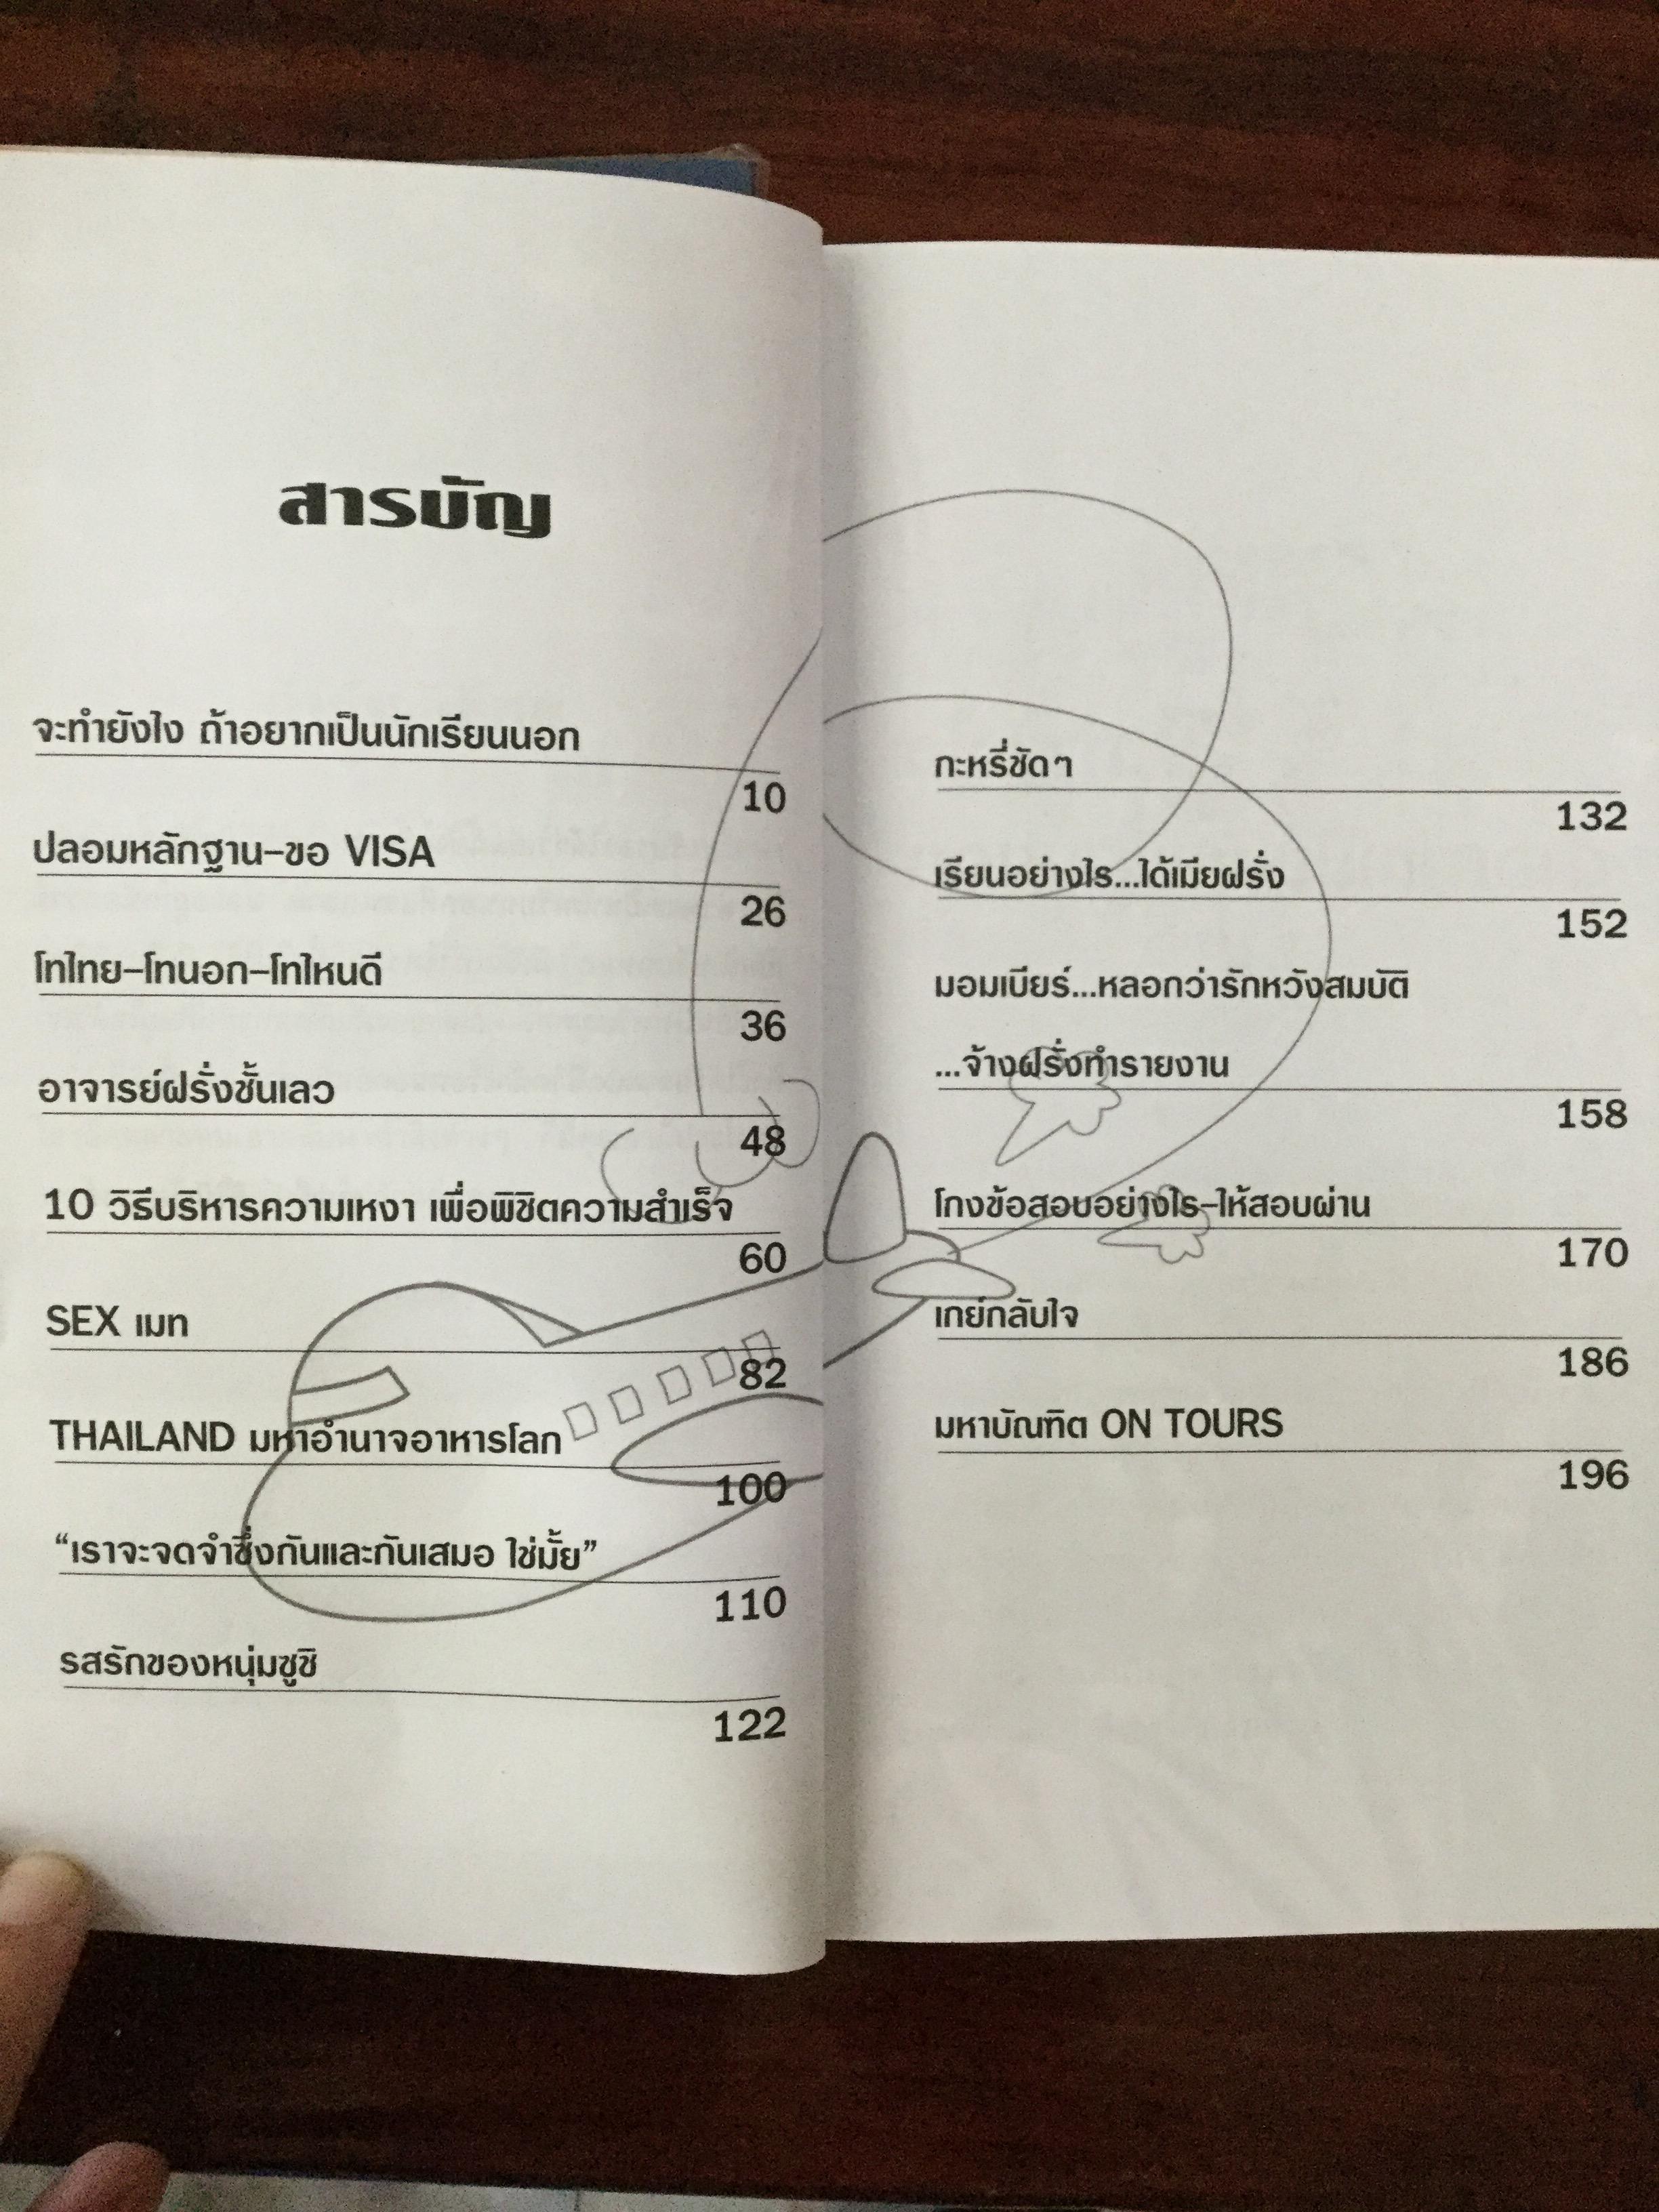 สารบัญ
จะทำยังไง ถ้าอยากเป็นนักเรียนนอก
10
ปลอมหลักฐาน–ขอ VISA
26
โทไทย–โทนอก–โทไหนดี
36
อาจารย์ฝรั่งชั้นเลว
48
10 วิธีบริหารความเหงา เพื่อพิชิตความสำเร็จ
60
SEX เมท
82
THAILAND มหาอำนาจอาหารโลก
100
“เราจะจดจำซึ่งกันและกันเสมอ ใช่มั้ย”
110
รสรักของหนุ่มซูชิ
122
กะหรี่ชัดๆ
132
เรียนอย่างไร...ได้เมียฝรั่ง
152
มอมเบียร์...หลอกว่ารักหวังสมบัติ
...จ้างฝรั่งทำรายงาน
158
โกงข้อสอบอย่างไร–ให้สอบผ่าน
170
เกย์กลับใจ
186
มหาบัณฑิต ON TOURS
196